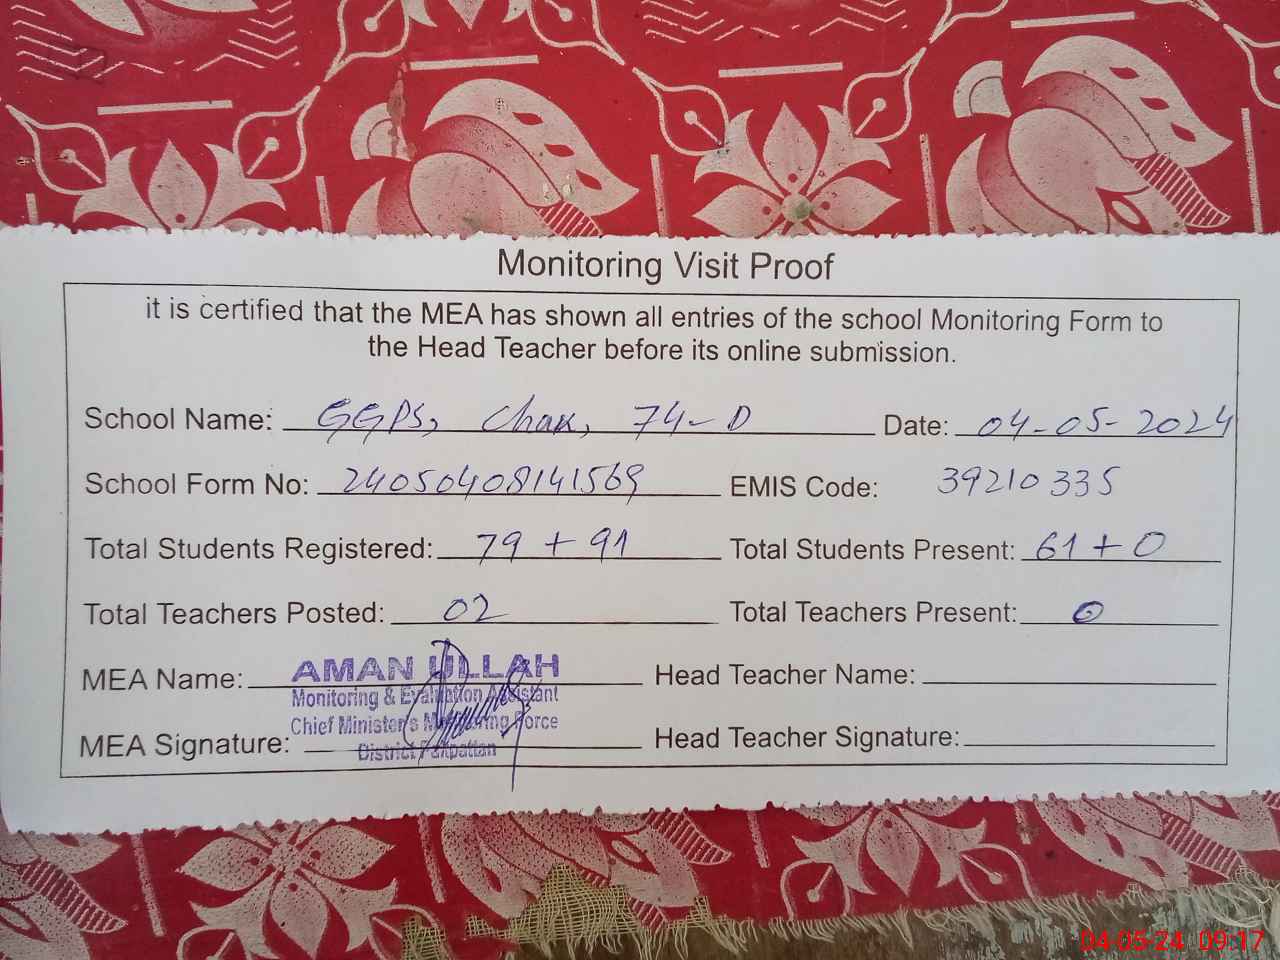 Monitoring Visit Proof
it is certified that the MEA has shown all entries of the school Monitoring Form to
the Head Teacher before its online submission.
School Name: GGPS, Chak, 74-D Date: 04-05-2024
School Form No: 24050408141569 EMIS Code: 39210335
Total Students Registered: 79 + 91 Total Students Present: 61 + 0
Total Teachers Posted: 02 Total Teachers Present: 0
MEA Name: AMAN ULLAH Head Teacher Name:
Monitoring & Evaluation Assistant
Chief Minister's Monitoring Force
MEA Signature: District Pakpattan Head Teacher Signature:
04-05-24 09:17